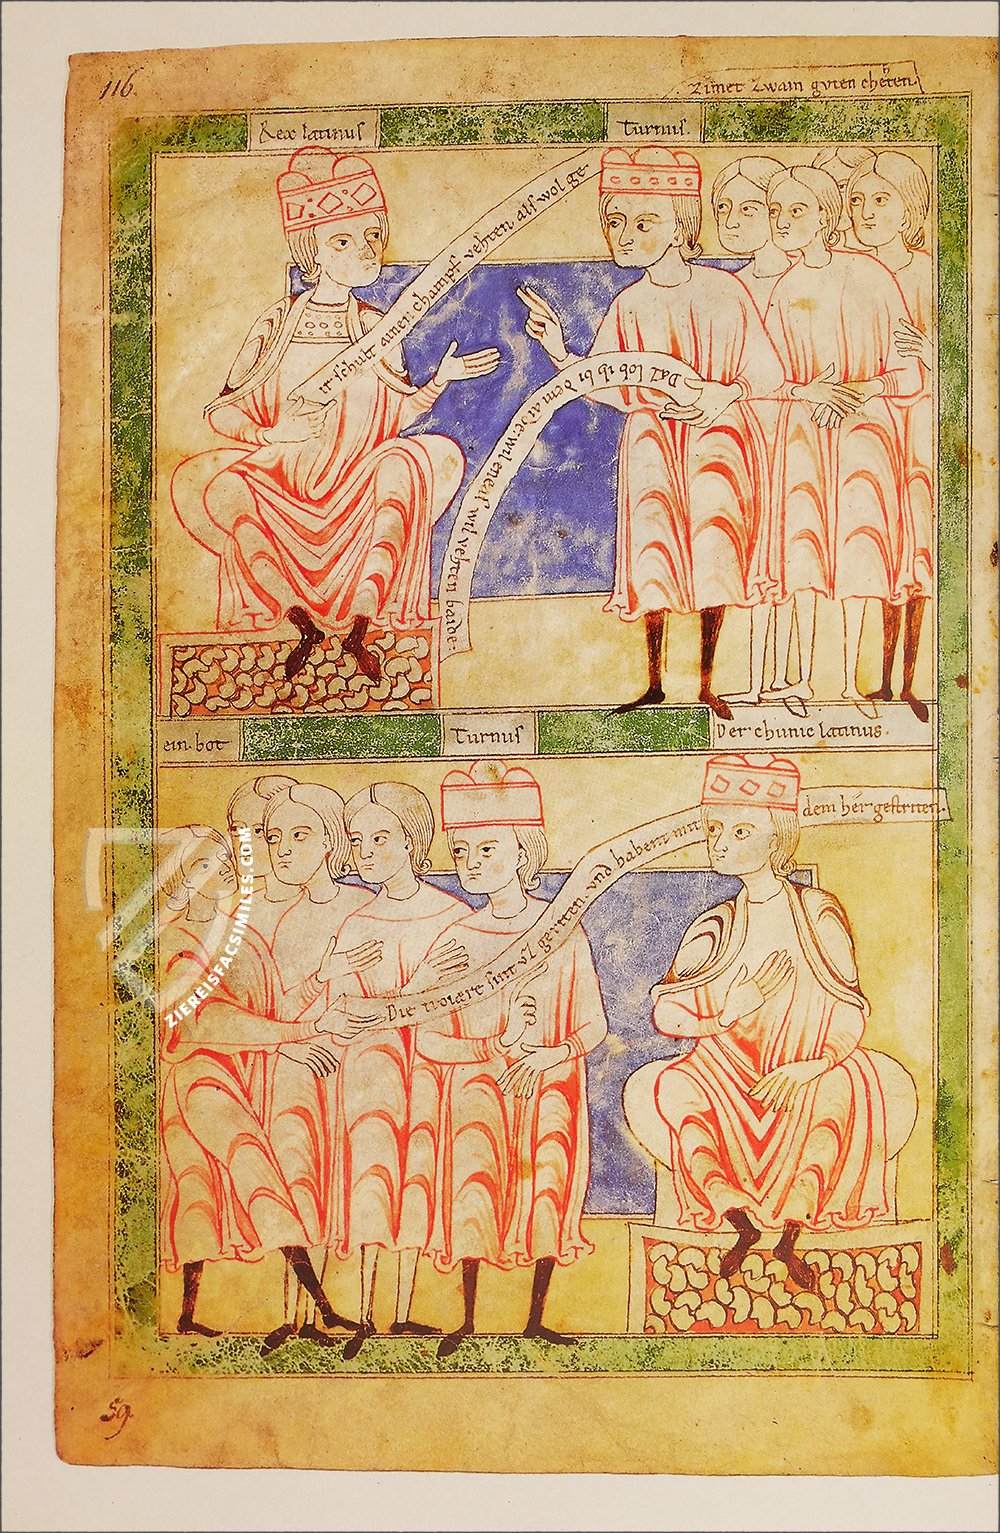 116.
zimet zwain gvten cheten.
Rex latinus
Turnus.
ir schult ainen champf vehten. als wol ge-
Daz lob ich bi dem
wil eneas wil vehten baide.
ein. bot
Turnus
Der chunic latinus.
dem her gestriten.
Die troiære sint vz geriten. vnd habent mit
ZIEREISFACSIMILES.COM
59.